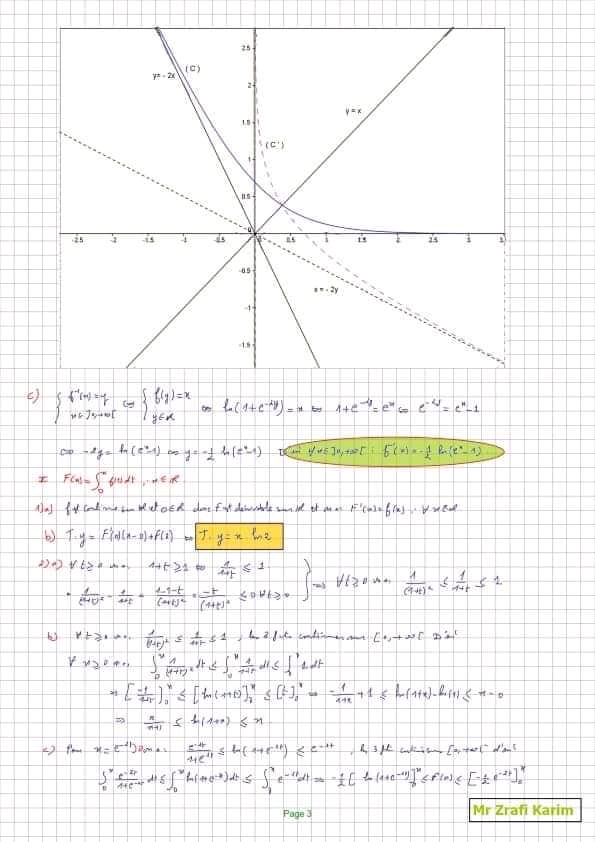 2.5
y= - 2x (C)
2
y = x
1.5
(C')
1
0.5
0
-2.5 -2 -1.5 -1 -0.5 0.5 1 1.5 2 2.5 3
-0.5
x = - 2y
-1
-1.5
c) { f⁻¹(x)=y ⇔ { f(y)=x ⇔ ln(1+e^{-2y})=x ⇔ 1+e^{-2y}=e^x ⇔ e^{-2y}=e^x-1
x∈]0,+∞[ y∈ℝ
⇔ -2y=ln(e^x-1) ⇔ y=-1/2 ln(e^x-1) ∀x∈]0,+∞[ : f⁻¹(x)=-1/2 ln(e^x-1)
II F(x)=∫_0^x f(t)dt, x∈ℝ
1)a) f est continue sur ℝ et 0∈ℝ donc F est dérivable sur ℝ et on a F'(x)=f(x), ∀x∈ℝ
b) T: y = F'(0)(x-0)+F(0) ⇔ T: y = x ln2
2)a) ∀t≥0 on a 1+t≥1 ⇔ 1/(1+t) ≤ 1
• 1/(1+t)² - 1/(1+t) = (1-1-t)/(1+t)² = -t/(1+t)² ≤ 0 ∀t≥0 } ⇒ ∀t≥0 on a 1/(1+t)² ≤ 1/(1+t) ≤ 1
b) ∀t≥0 on a 1/(1+t)² ≤ 1/(1+t) ≤ 1, les 3 fcts continues sur [0,+∞[ D'où
∀x≥0 on a ∫_0^x 1/(1+t)² dt ≤ ∫_0^x 1/(1+t) dt ≤ ∫_0^x 1dt
⇒ [-1/(1+t)]_0^x ≤ [ln(1+t)]_0^x ≤ [t]_0^x ⇒ -1/(1+x)+1 ≤ ln(1+x)-ln(1) ≤ x-0
⇒ x/(x+1) ≤ ln(1+x) ≤ x
c) Pour x=e^{-2t}>0 on a: e^{-2t}/(1+e^{-2t}) ≤ ln(1+e^{-2t}) ≤ e^{-2t}, les 3 fcts continues [0,+∞[ d'où
∫_0^x e^{-2t}/(1+e^{-2t}) dt ≤ ∫_0^x ln(1+e^{-2t})dt ≤ ∫_0^x e^{-2t}dt ⇒ -1/2[ln(1+e^{-2t})]_0^x ≤ F(x) ≤ [-1/2 e^{-2t}]_0^x
Mr Zrafi Karim
Page 3